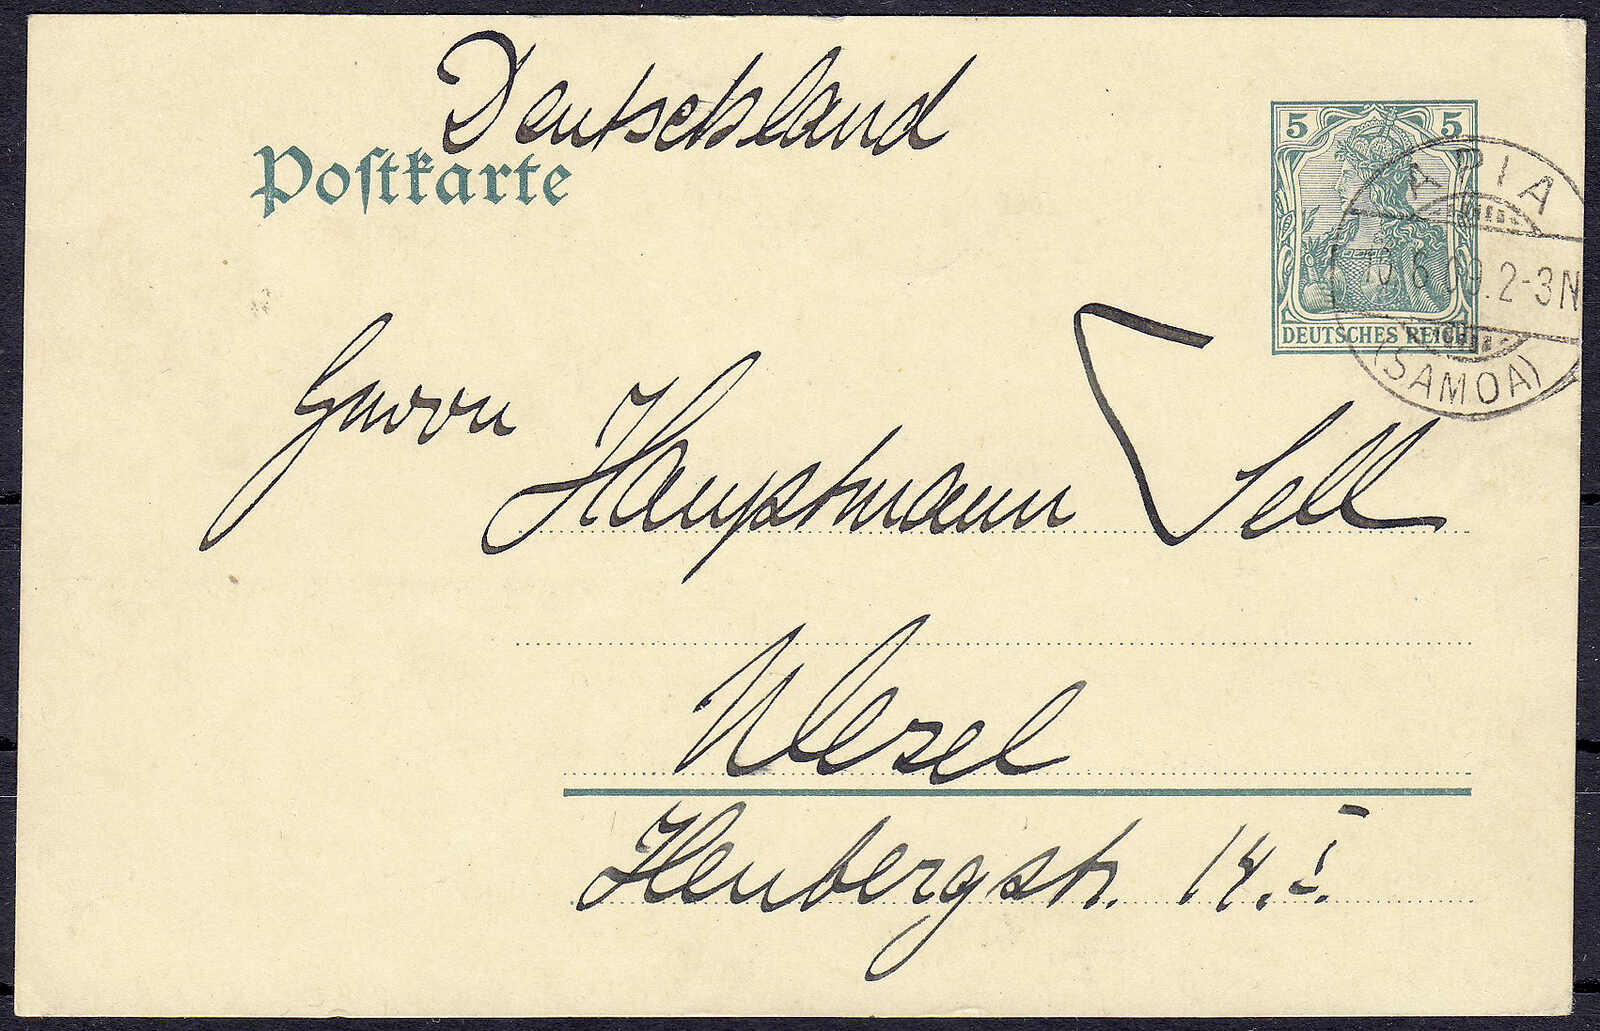 Deutschland
Postkarte
5 5
DEUTSCHES REICH
APIA
6.09.2-3N
(SAMOA)
Herrn
Hauptmann Sell
Wesel
Heubergstr. 14. I.